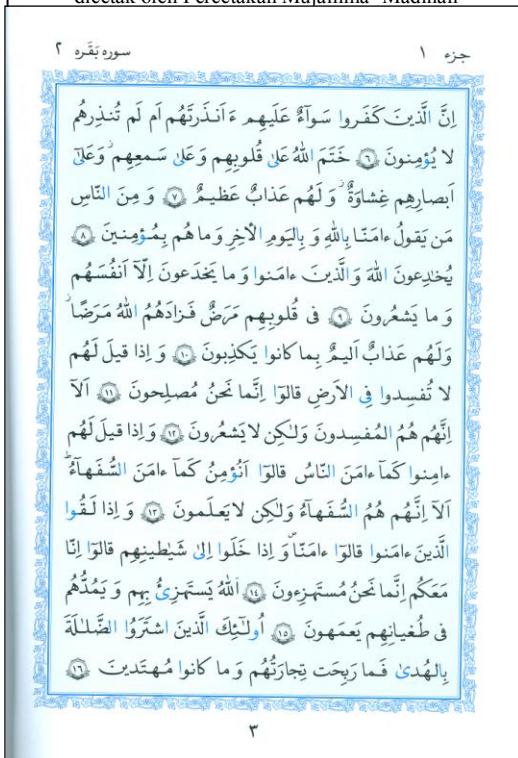 dicetak oleh Percetakan Mujamma' Madinah
جزء ١ سوره بَقَره ٢
اِنَّ الَّذينَ كَفَروا سَوآءٌ عَلَيهِم ءَاَنذَرتَهُم اَم لَم تُنذِرهُم
لا يُؤمِنونَ ﴿٦﴾ خَتَمَ اللهُ عَلىٰ قُلوبِهِم وَ عَلىٰ سَمعِهِم ۖ وَ عَلىٰٓ
اَبصارِهِم غِشاوَةٌ ۖ وَ لَهُم عَذابٌ عَظيمٌ ﴿٧﴾ وَ مِنَ النّاسِ
مَن يَقولُ ءامَنّا بِاللهِ وَ بِاليَومِ الأخِرِ وَ ما هُم بِمُؤمِنينَ ﴿٨﴾
يُخٰدِعونَ اللهَ وَ الَّذينَ ءامَنوا وَ ما يَخدَعونَ اِلّآ اَنفُسَهُم
وَ ما يَشعُرونَ ﴿٩﴾ فى قُلوبِهِم مَرَضٌ فَزادَهُمُ اللهُ مَرَضًا ۖ
وَلَهُم عَذابٌ اَليمٌ بِما كانوا يَكذِبونَ ﴿١٠﴾ وَ اِذا قيلَ لَهُم
لا تُفسِدوا فِى الاَرضِ قالوٓا اِنَّما نَحنُ مُصلِحونَ ﴿١١﴾ اَلآ
اِنَّهُم هُمُ المُفسِدونَ وَلٰكِن لا يَشعُرونَ ﴿١٢﴾ وَ اِذا قيلَ لَهُم
ءامِنوا كَمآ ءامَنَ النّاسُ قالوٓا اَنُؤمِنُ كَمآ ءامَنَ السُّفَهآءُ ۗ
اَلآ اِنَّهُم هُمُ السُّفَهآءُ وَلٰكِن لا يَعلَمونَ ﴿١٣﴾ وَ اِذا لَقُوا
الَّذينَ ءامَنوا قالوٓا ءامَنّا وَ اِذا خَلَوا اِلىٰ شَيٰطينِهِم قالوٓا اِنّا
مَعَكُم اِنَّما نَحنُ مُستَهزِءونَ ﴿١٤﴾ اَللهُ يَستَهزِئُ بِهِم وَ يَمُدُّهُم
فى طُغيانِهِم يَعمَهونَ ﴿١٥﴾ اُولٰٓئِكَ الَّذينَ اشتَرَوُا الضَّلٰلَةَ
بِالهُدىٰ فَما رَبِحَت تِجارَتُهُم وَ ما كانوا مُهتَدينَ ﴿١٦﴾
٣